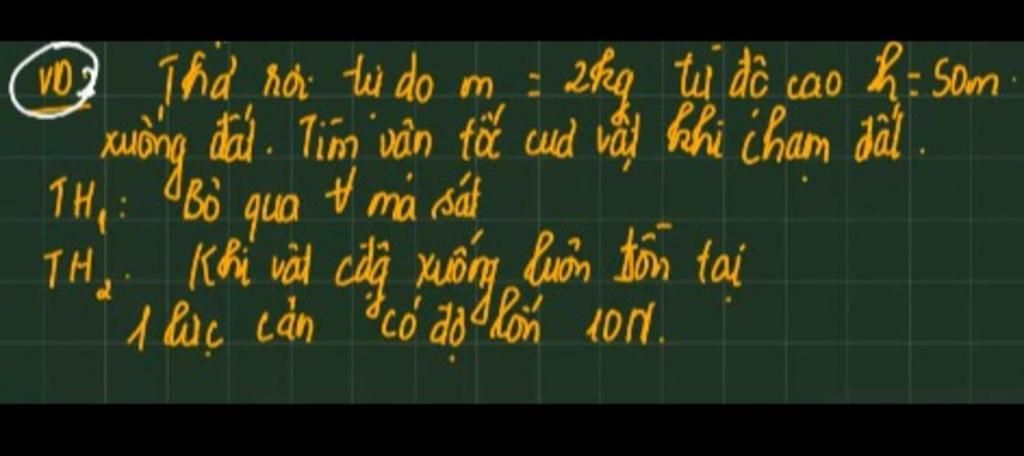 VD2 Thả rơi tự do m = 2kg từ độ cao h = 50m.
xuống đất. Tìm vận tốc của vật khi chạm đất.
TH1: Bỏ qua ∀ ma sát
TH2. Khi vật xuống luôn tồn tại
1 lực cản có độ lớn 10N.